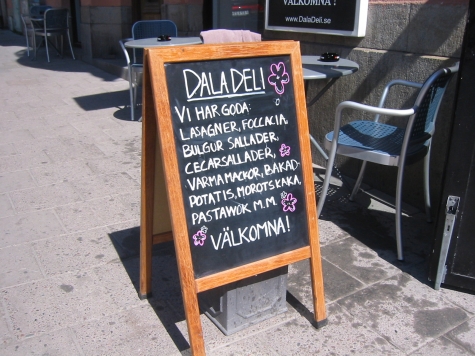 VÄLKOMNA!
www.DalaDeli.se
DALA DELI
VI HAR GODA:
LASAGNER, FOCCACIA,
BULGUR SALLADER,
CECARSALLADER,
VARMA MACKOR, BAKAD-
POTATIS, MOROTSKAKA,
PASTAWOK M.M.
VÄLKOMNA!